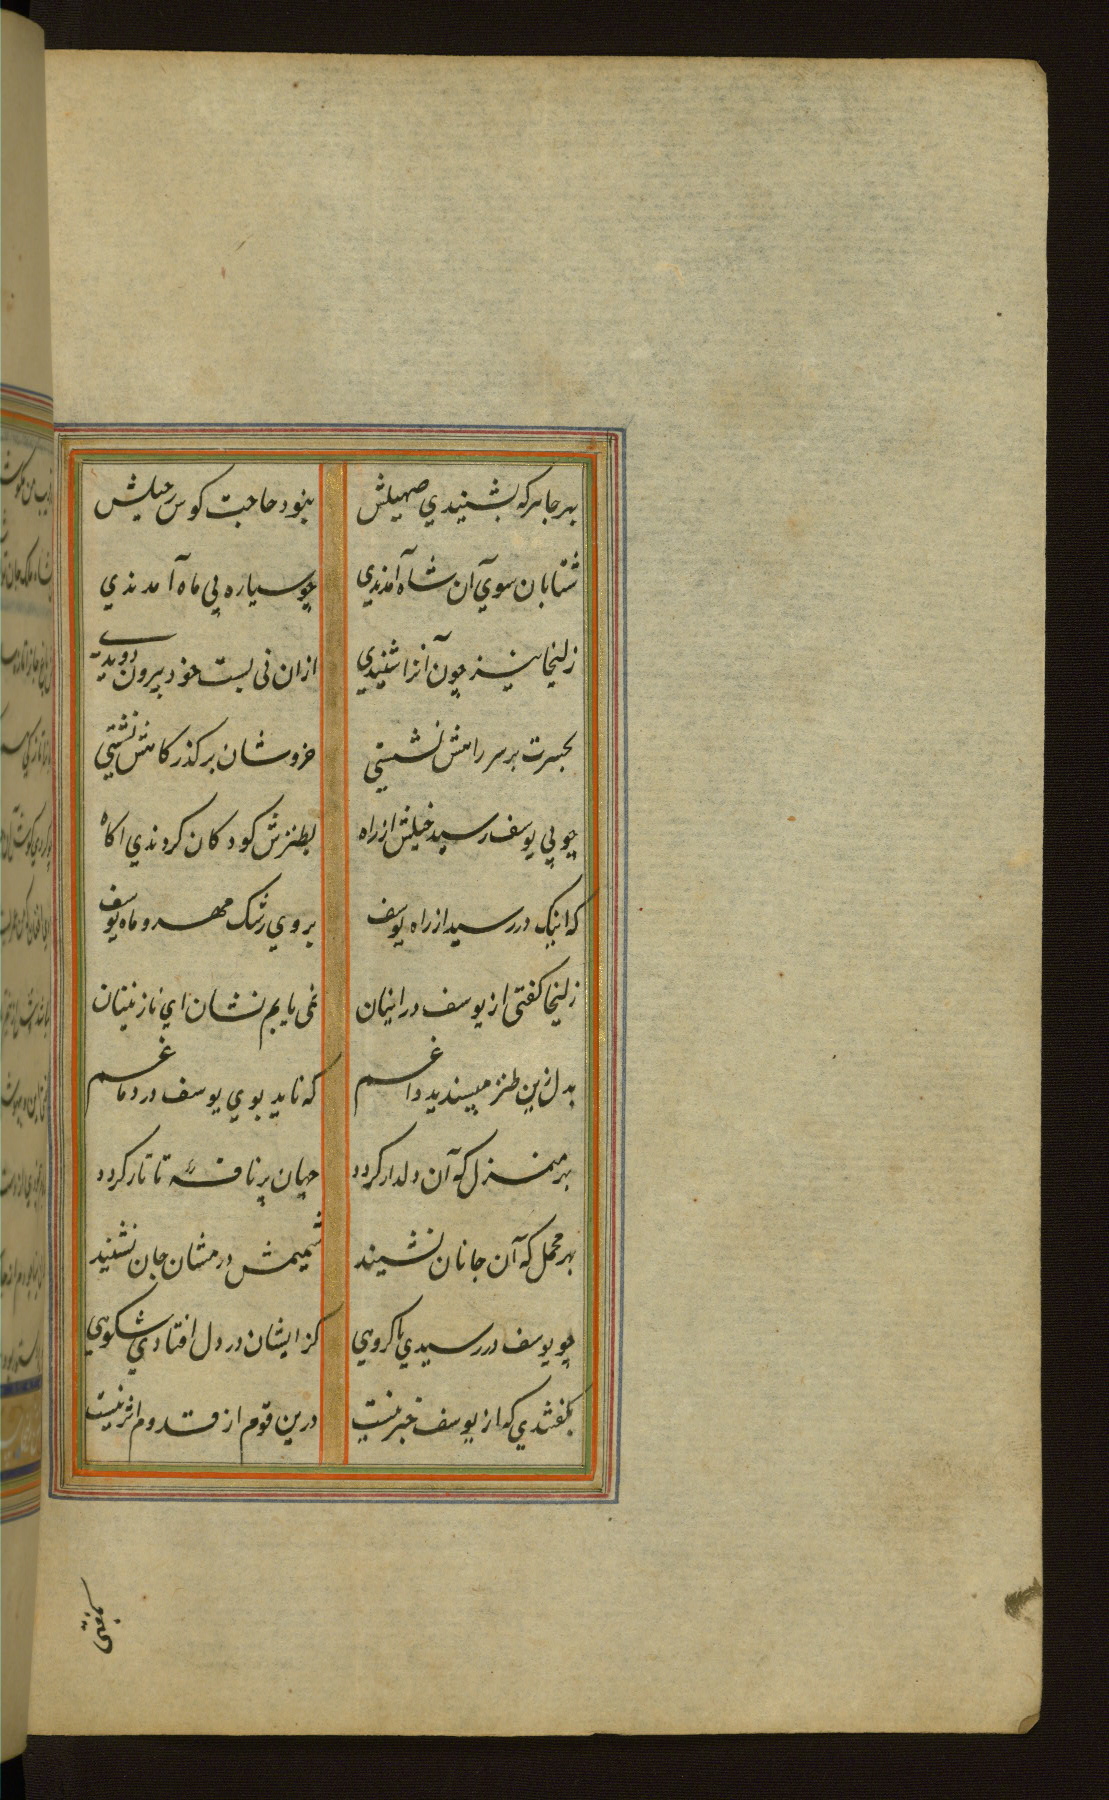 بهر جا هر که بشنیدی صهیلش نبود حاجت کوس رحیلش
شتابان سوی آن شاه آمدندی چو سیاره پی ماه آمدندی
زلیخا نیز چون آنرا شنیدی از ان نی بست خود بیرون دویدی
بحسرت بر سر راهش نشستی خروشان بر کذر کاهش نشستی
چو بی یوسف رسید خیلش از راه بطنزش کودکان کردندی اکاه
که اینک در رسید از راه یوسف بروی رشک مهر و ماه یوسف
زلیخا کفتی از یوسف در اینان نمی یابم نشان ای نازنینان
بدل زین طنز مپسندید داغم که ناید بوی یوسف در دماغم
بهر منزل که آن دلدار کردد جهان پر نافۀ تاتار کردد
بهر محمل که آن جانان نشیند شمیمش در مشان جان نشیند
چو یوسف در رسیدی با کروهی کز ایشان در دل افتادی شکوهی
بکفتندی که از یوسف خبر نیست درین قوم از قدوم اثر نیست
بکفتی